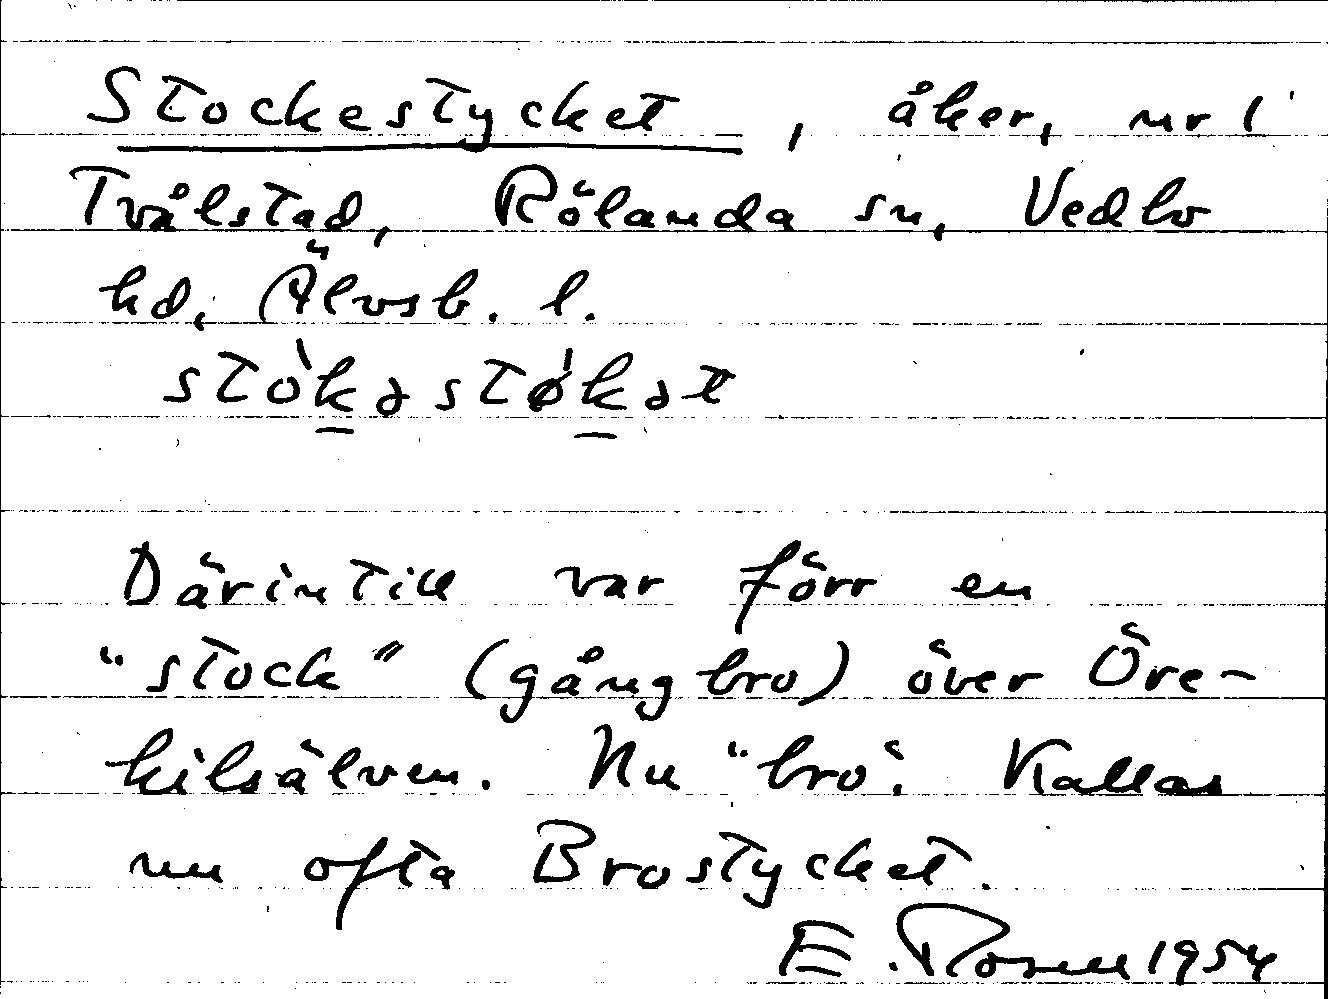 Stockestycket, åker, nr 1
Tvålstad, Rölanda sn, Vedbo
hd, Älvsb. l.
stòkəstø̀kət
Därintill var förr en
"stock" (gångbro) över Öre-
kilsälven. Nu "bro". Kallas
nu ofta Brostycket.
E. Rosell 1954